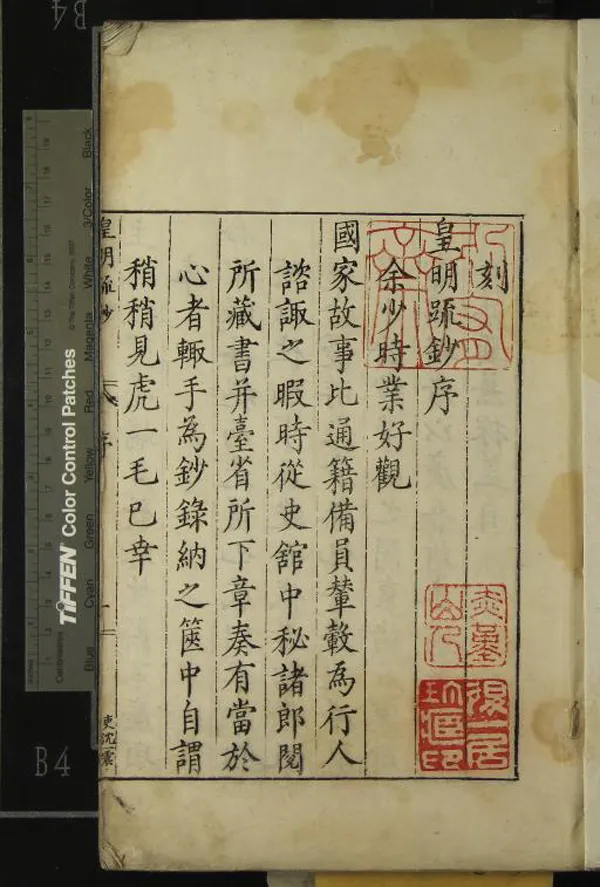 刻
皇明疏鈔序
余少時業好觀
國家故事比通籍備員輦轂為行人
諮諏之暇時從史舘中秘諸郎閱
所藏書并臺省所下章奏有當於
心者輙手為鈔錄納之篋中自謂
稍稍見虎一毛已幸
皇明疏鈔
序
一
吏沈雲
TIFFEN Color Control Patches
© The Tiffen Company, 2007
Blue
Cyan
Green
Yellow
Red
Magenta
White
3/Color
Black
Centimetres
Inches
B4
B4